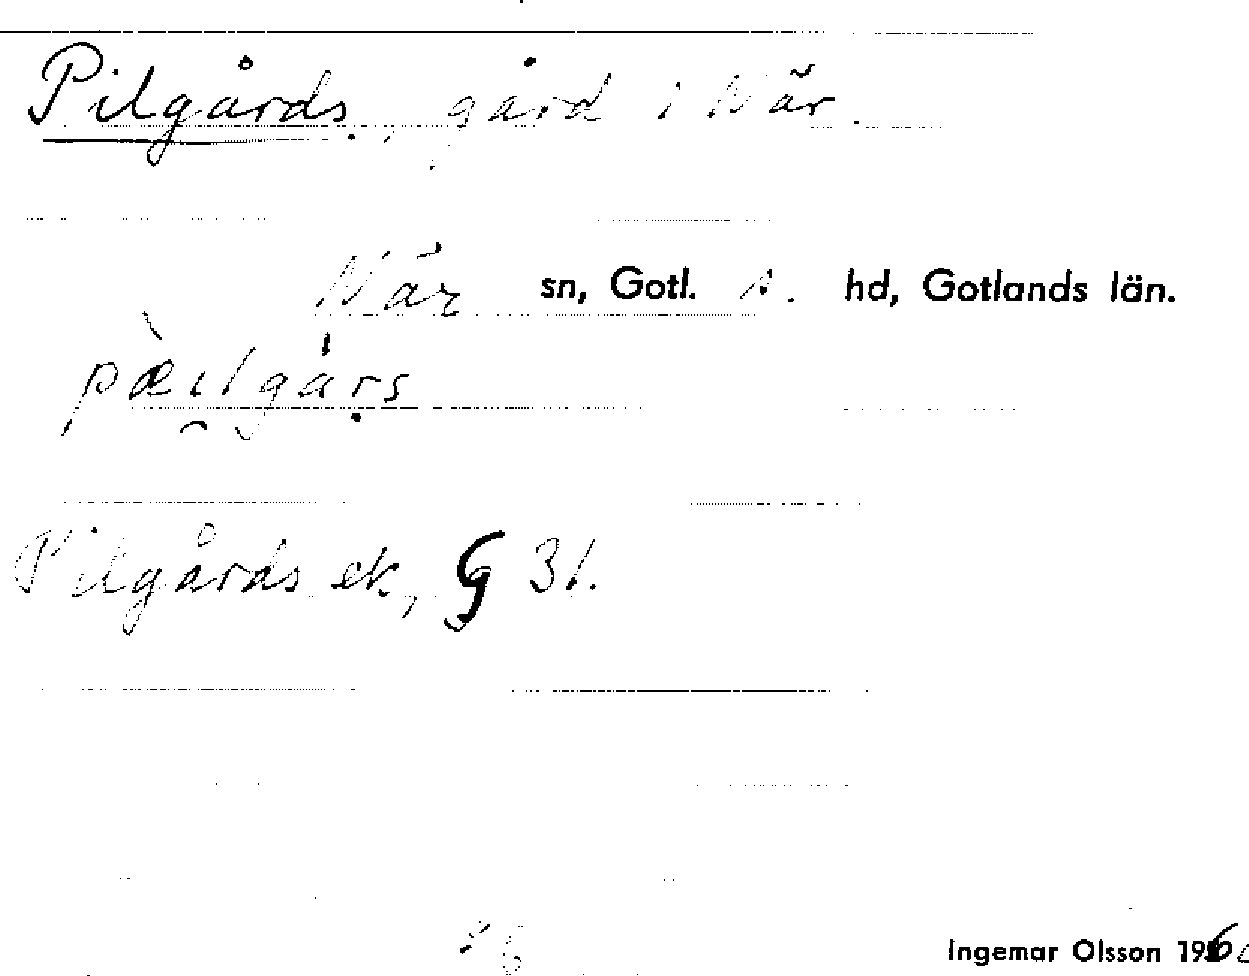 Pilgårds, gård i När.
När sn, Gotl. s. hd, Gotlands län.
pæilgårs
Pilgårds ek, G 31.
Ingemar Olsson 1960